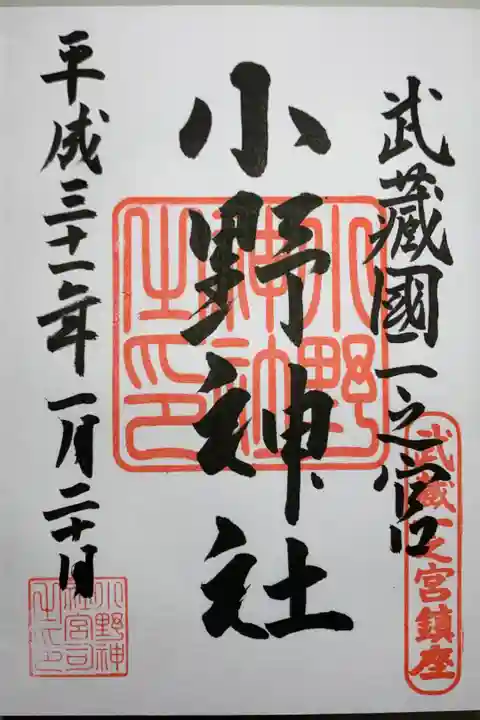 武藏國一之宮
武蔵一之宮鎮座
小野神社
小野神社之印
平成三十一年一月二十日
小野神社宮司之印